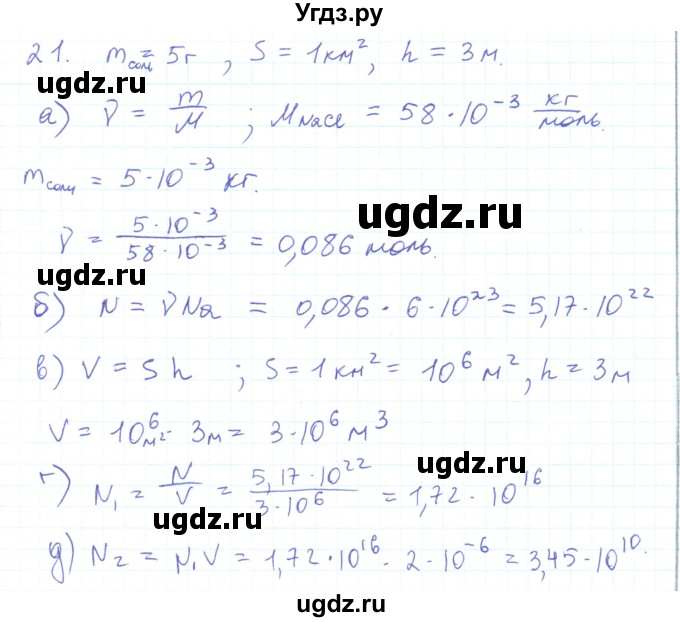 Угдз.ру
21. mсоли = 5г, S = 1км², h = 3м.
ugdz.ru
а) ν = m/M ; MNaCl = 58·10⁻³ кг/моль.
mсоли = 5·10⁻³ кг.
ugdz.ru
ν = 5·10⁻³/58·10⁻³ = 0,086 моль.
ugdz.ru
б) N = νNa = 0,086 · 6·10²³ = 5,17·10²²
ugdz.ru
в) V = S h ; S = 1км² = 10⁶ м², h = 3м
V = 10⁶м² · 3м = 3·10⁶ м³
ugdz.ru
г) N₁ = N/V = 5,17·10²²/3·10⁶ = 1,72 · 10¹⁶
ugdz.ru
д) N₂ = N₁V = 1,72·10¹⁶ · 2·10⁻⁶ = 3,45·10¹⁰.
ugdz.ru